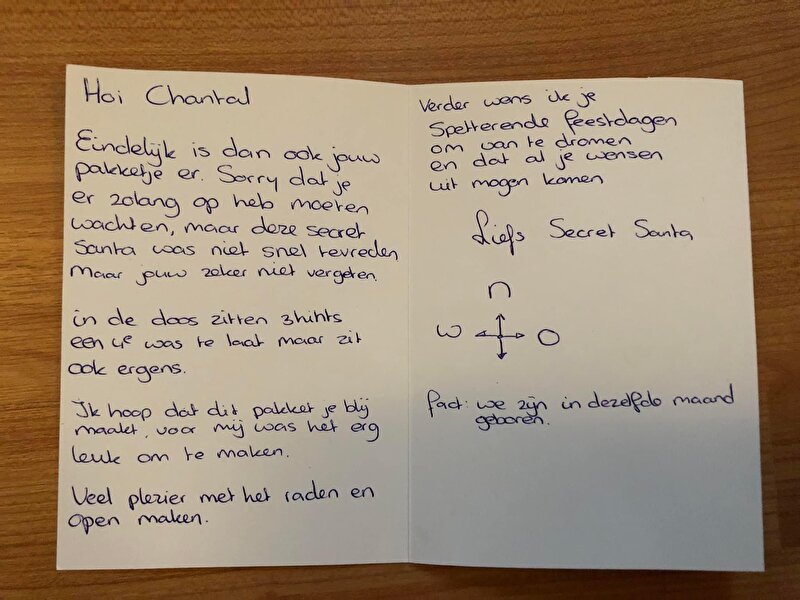 Hoi Chantal
Eindelijk is dan ook jouw
pakketje er. Sorry dat je
er zolang op heb moeten
wachten, maar deze secret
Santa was niet snel tevreden
maar jouw zeker niet vergeten.
in de doos zitten 3 hints
een 4e was te laat maar zit
ook ergens.
Ik hoop dat dit pakket je blij
maakt, voor mij was het erg
leuk om te maken.
Veel plezier met het raden en
open maken.
Verder wens ik je
Spetterende feestdagen
om van te dromen
en dat al je wensen
uit mogen komen
Liefs Secret Santa
n
w O
fact: we zijn in dezelfde maand
geboren.